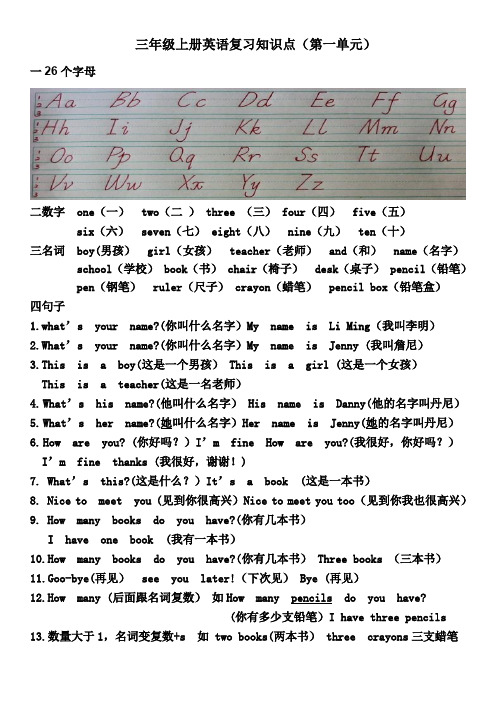 三年级上册英语复习知识点（第一单元）
一26个字母
Aa Bb Cc Dd Ee Ff Gg
Hh Ii Jj Kk Ll Mm Nn
Oo Pp Qq Rr Ss Tt Uu
Vv Ww Xx Yy Zz
二数字 one（一） two（二 ） three （三） four（四） five（五）
six（六） seven（七） eight（八） nine（九） ten（十）
三名词 boy(男孩） girl（女孩） teacher（老师） and（和） name（名字）
school（学校） book（书） chair（椅子） desk（桌子） pencil（铅笔）
pen（钢笔） ruler（尺子） crayon（蜡笔） pencil box（铅笔盒）
四句子
1.what’s your name?(你叫什么名字）My name is Li Ming（我叫李明）
2.What’s your name?(你叫什么名字）My name is Jenny（我叫詹尼）
3.This is a boy(这是一个男孩） This is a girl (这是一个女孩）
This is a teacher(这是一名老师）
4.What’s his name?(他叫什么名字） His name is Danny(他的名字叫丹尼）
5.What’s her name?(她叫什么名字）Her name is Jenny(她的名字叫丹尼）
6.How are you? (你好吗？）I’m fine How are you?(我很好，你好吗？）
I’m fine thanks (我很好，谢谢！)
7. What’s this?(这是什么？）It’s a book (这是一本书）
8. Nice to meet you (见到你很高兴）Nice to meet you too（见到你我也很高兴）
9. How many books do you have?(你有几本书）
I have one book (我有一本书）
10.How many books do you have?(你有几本书） Three books （三本书）
11.Goo-bye(再见） see you later!（下次见） Bye (再见）
12.How many (后面跟名词复数） 如How many pencils do you have?
(你有多少支铅笔）I have three pencils
13.数量大于1，名词变复数+s 如 two books(两本书） three crayons三支蜡笔